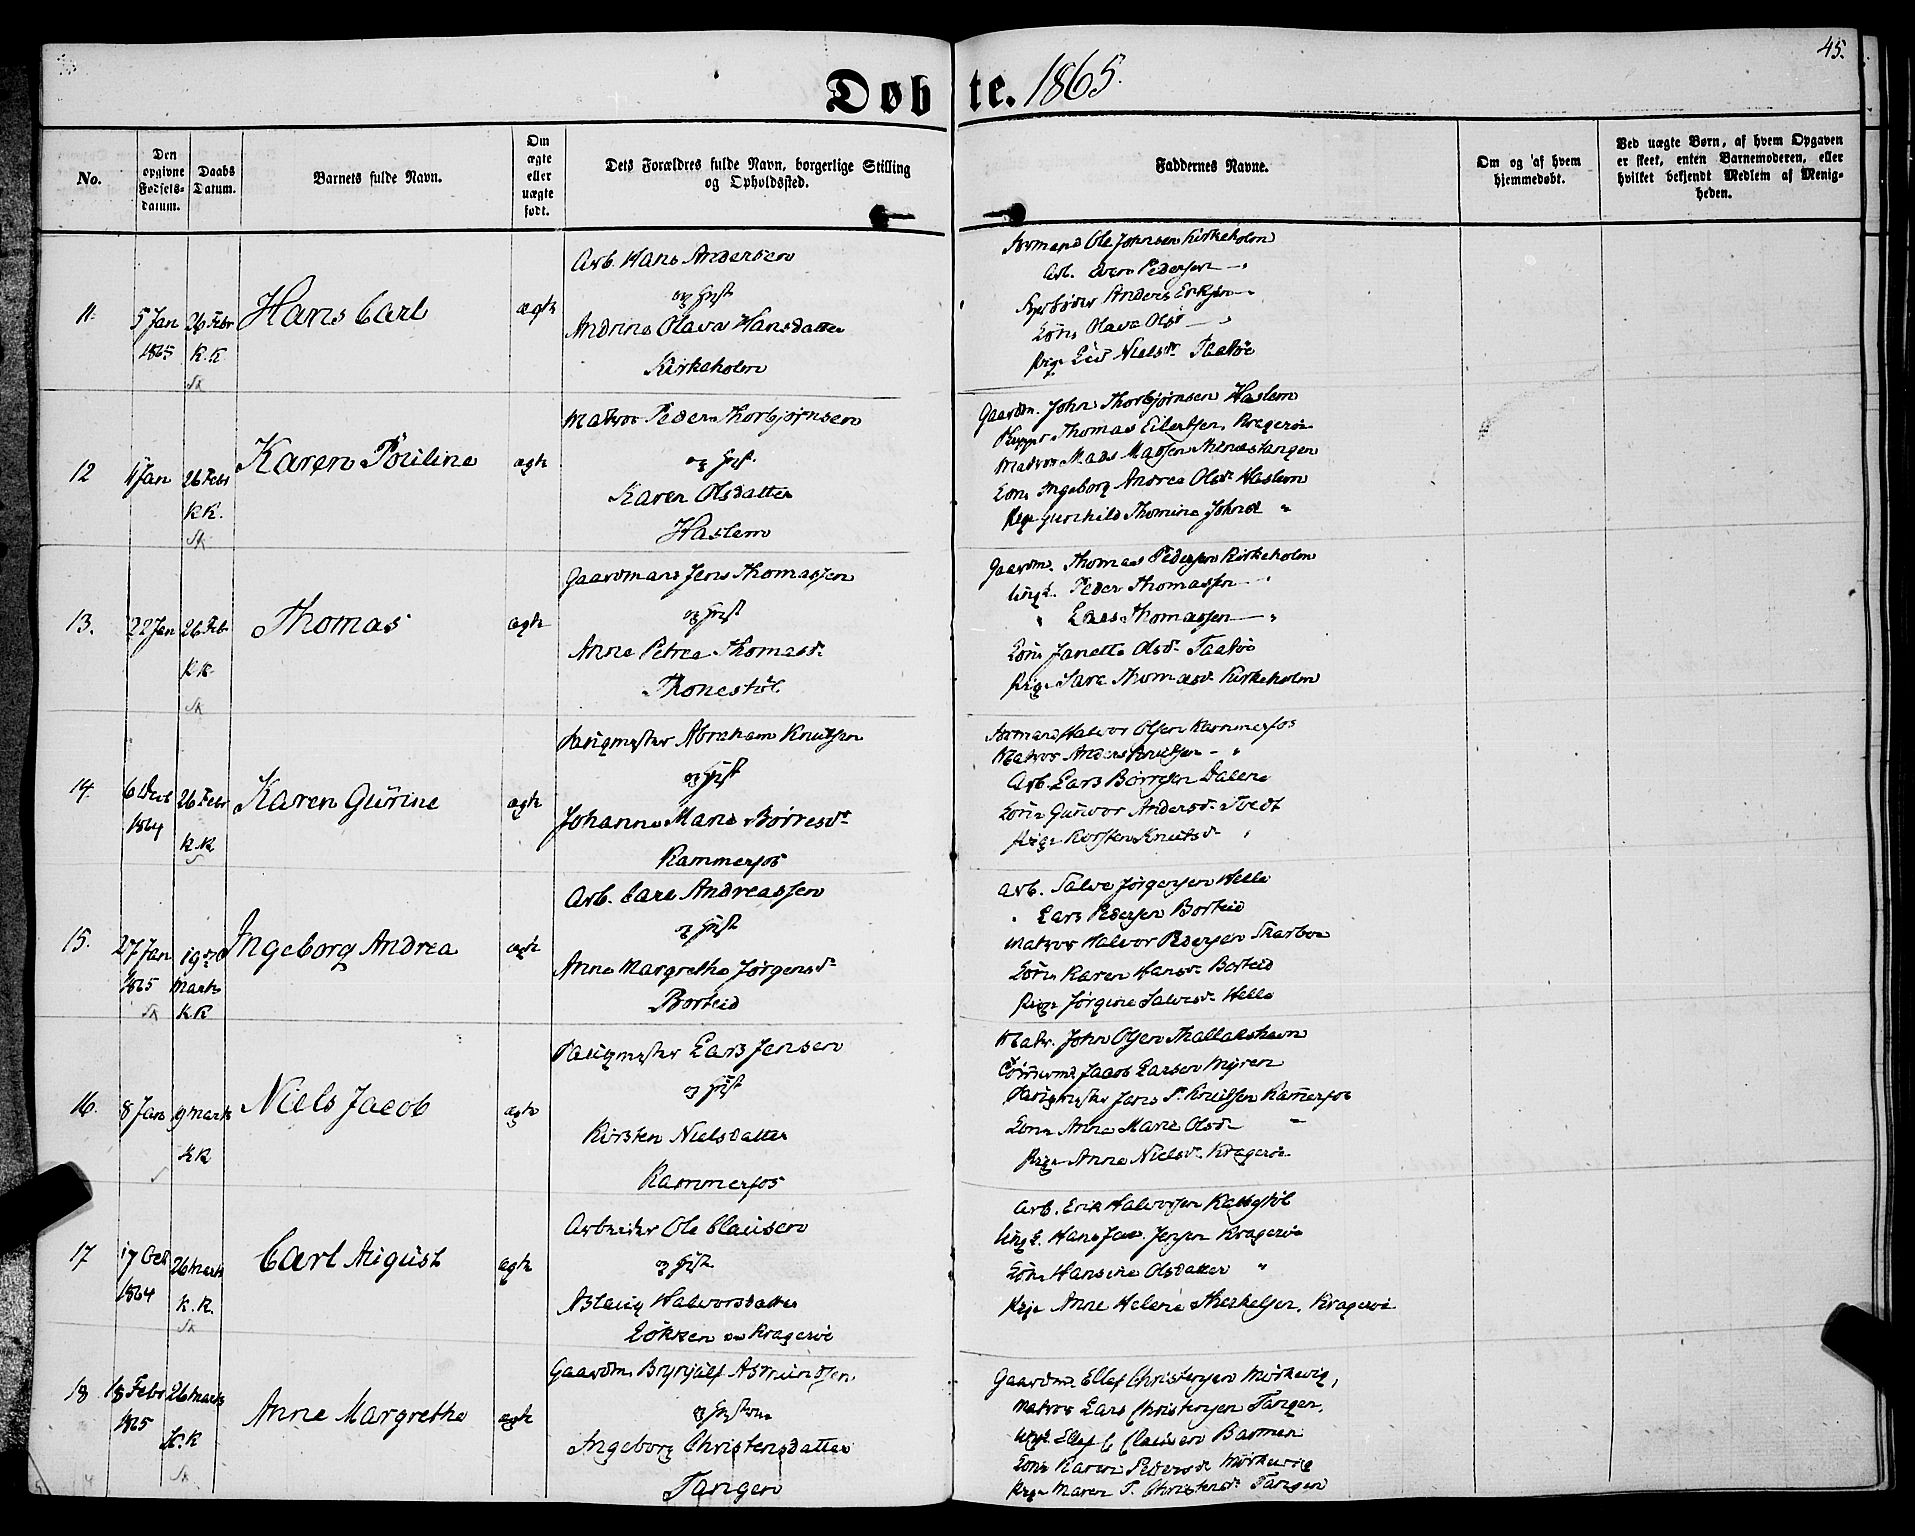 45.
Døbte. 1865.
No.
Den opgivne Fødsels-datum.
Daabs Datum.
Barnets fulde Navn.
Om ægte eller uægte født.
Dets Forældres fulde Navn, borgerlige Stilling og Opholdssted.
Faddernes Navne.
Om og af hvem hjemmedøbt.
Ved uægte Børn, af hvem Opgaven er skeet, enten Barnemoderen, eller hvilket bekjendt Medlem af Menigheden.
11.
5 Jan 1865
26 Febr K.K.
Hans Carl
ægte
Arb. Hans Andersen
og Hust
Andrine Olava Hansdatter
Kirkeholm
Ole Johnsen Kirkeholm
Arb. Pedersen — "
Anders Eriksen "
Kone Olava Olsd — "
Pige Nielsdr. Taatøe
12
11 Jan
26 Febr KK.
Karen Pouline
ægte
Matros Peder Thorbjørnsen
og Hust.
Karen Olsdatter
Haslem
Gaardm. John Thorbjørnsen Haslem
Thomas Eilertsen, Kragerøe
Matros Mads Madsen
Kone Ingeborg Andrea Olsdr Haslem
Pige Gunhild Thomine Johnsd "
13.
22 Jan
26 Feb K.K.
Thomas
ægte
Gaardmand Jens Thomassen
og Hust
Anne Petrea Thomasdr
Thonestøl
Gaardm. Thomas Pedersen Kirkeholm
Ungk. Peder Thomassen — "
" Lars Thomassen — "
Kone Janette Olsdr Taatøe
Pige Sara Thomasdr Kirkeholm
14.
6 Decb 1864
26 Febr K.K
Karen Gurine
ægte
Abraham Knutsen
og Hust
Johanne Marie Børresdr
Kammerfos
Halvor Olsen Kammerfos
Matros Anders Knutsen — "
Arb. Lars Børresen Dalene
Kone Gunvor Andersdr Tvedt
Pige Kirsten Knutsdr "
15.
27 Jan 1865
19de Marts KK
Ingeborg Andrea
ægte
Arb. Carl Andreassen
og Hust
Anne Margrethe Jørgensdr
Borteid
Arb. Salve Jørgensen Helle
" Lars Pedersen Borteid
Matros Halvor Pedersen
Kone Karen Hansdr Borteid
Pige Jørgine Salvesdr Helle
16.
8 Jan
19 Marts KK
Niels Jacob
ægte
Lars Jensen
og Hust
Kirsten Nielsdatter
Kammerfos
Matr. John Olsen
Jacob Larsen Myren
Jens P. Knutsen Kammerfos
Kone Anne Marie Olsdr "
Pige Anne Nielsdr Kragerøe
17
17 Oct 1864
26 Marts K.K.
Carl August
ægte
Arbeider Ole Clausen
og Hust.
Aslaug Halvorsdatter
Kragerøe
Arb. Erik Halvorsen
Ungk. Hans Jac. Jensen Kragerøe
Kone Hansine Olsdatter "
Pige Anne Helene Therkelsen, Kragerøe
18
18 Febr 1865
26 Marts K.K
Anne Margrethe
ægte
Gaardm. Brynjulf Asmundsen
og Hustrue
Ingeborg Christensdatter
Tangen
Gaardm. Ellef Christensen
Matros Lars Christensen Tangen.
Ungk. Ellef C Clausen Barmen
Kone Karen Pedersdr
Pige Maren T. Christensdr. Tangen